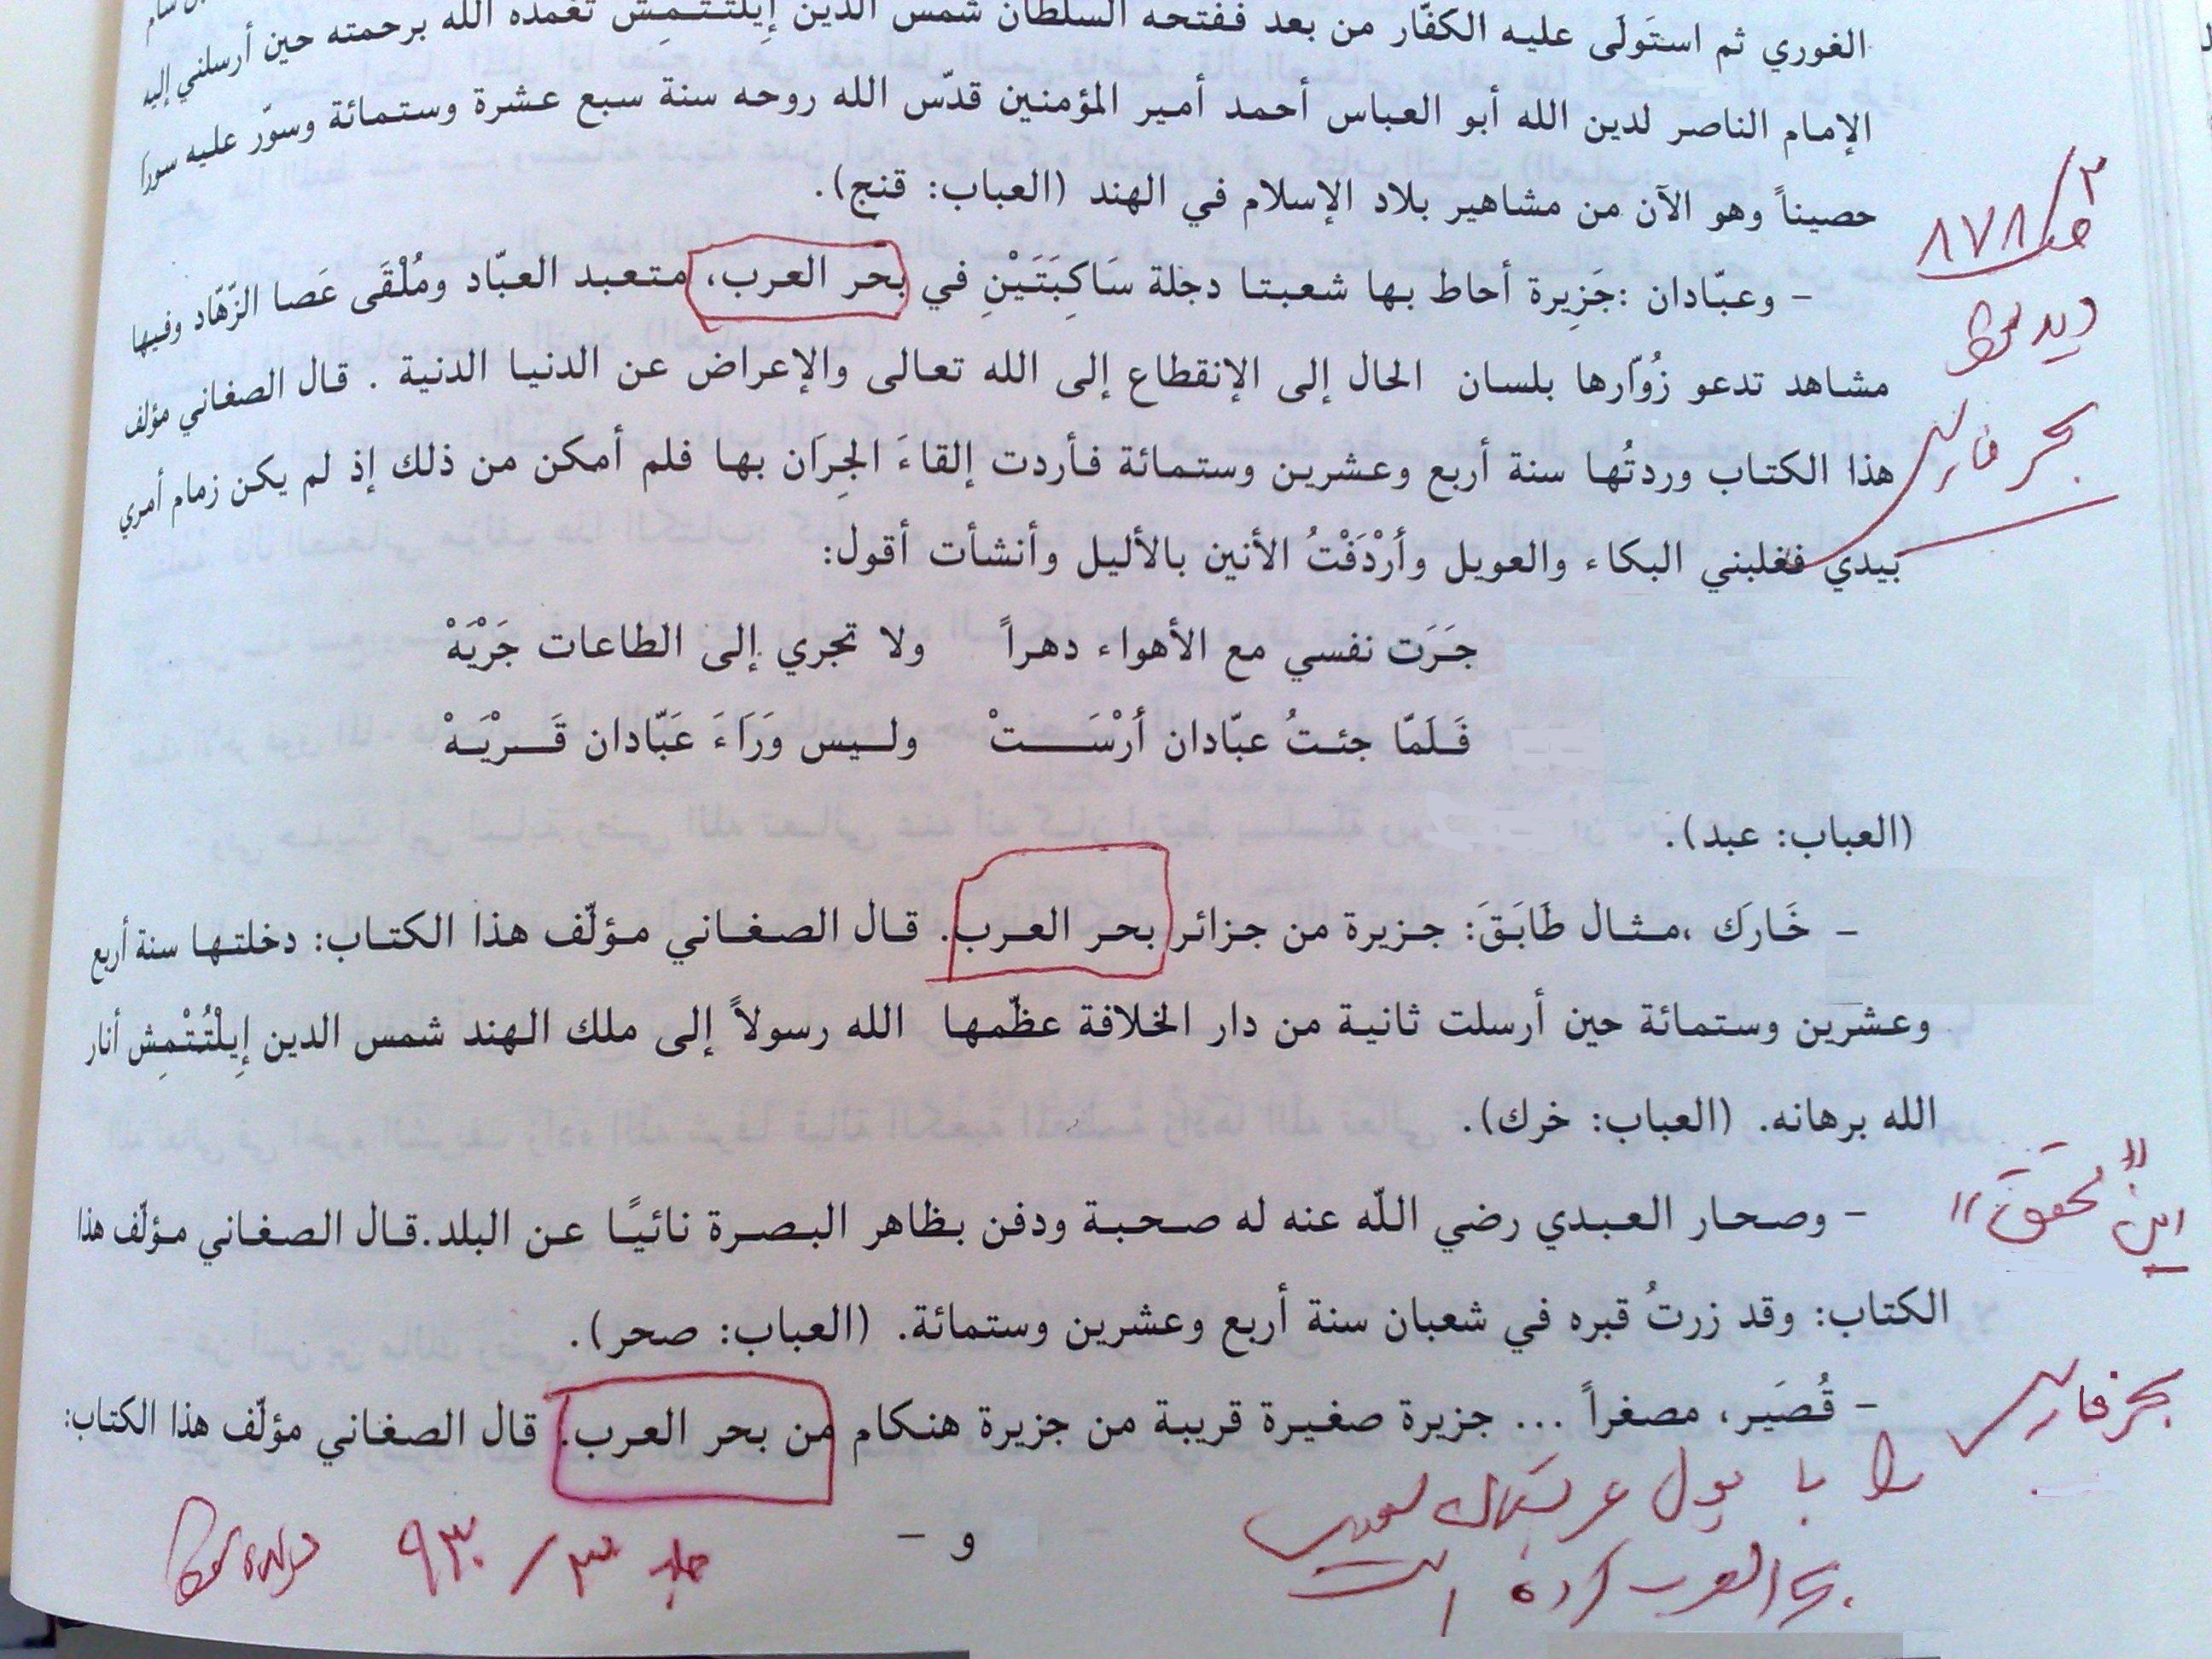 الغوري ثم استَولَى عليه الكفّار من بعد ففتحه السلطان شمس الدين إِيلْتُتْمِش تغمده الله برحمته حين أرسلني إليه
الإمام الناصر لدين الله أبو العباس أحمد أمير المؤمنين قدّس الله روحه سنة سبع عشرة وستمائة وسوّر عليه سوراً
حصيناً وهو الآن من مشاهير بلاد الإسلام في الهند (العباب: قنج).
- وعبّادان :جَزِيرة أحاط بها شعبتا دجلة سَاكِبَتَيْنِ في بحر العرب، متعبد العبّاد ومُلْقَى عَصا الزّهّاد وفيها
مشاهد تدعو زُوّارها بلسان الحال إلى الإنقطاع إلى الله تعالى والإعراض عن الدنيا الدنية . قال الصغاني مؤلف
هذا الكتاب وردتُها سنة أربع وعشرين وستمائة فأردت إلقاءَ الجِرَان بها فلم أمكن من ذلك إذ لم يكن زمام أمري
بيدي فغلبني البكاء والعويل وأَرْدَفْتُ الأنين بالأليل وأنشأت أقول:
جَرَت نفسي مع الأهواء دهراً ولا تجري إلى الطاعات جَرْيَهْ
فَلَمّا جئتُ عبّادان أَرْسَتْ وليس وَرَاءَ عَبّادان قَرْيَهْ
(العباب: عبد).
- خَارَك ،مثال طَابَقَ: جزيرة من جزائر بحر العرب. قال الصغاني مؤلّف هذا الكتاب: دخلتها سنة أربع
وعشرين وستمائة حين أرسلت ثانية من دار الخلافة عظّمها الله رسولاً إلى ملك الهند شمس الدين إِيلْتُتْمِش أنار
الله برهانه. (العباب: خرك).
- وصحار العبدي رضي اللّه عنه له صحبة ودفن بظاهر البصرة نائيًا عن البلد.قال الصغاني مؤلّف هذا
الكتاب: وقد زرتُ قبره في شعبان سنة أربع وعشرين وستمائة. (العباب: صحر).
- قُصَير، مصغراً ... جزيرة صغيرة قريبة من جزيرة هنكام من بحر العرب. قال الصغاني مؤلّف هذا الكتاب:
- و -
٢
ص ٨٧٨
بحر فارس
این "محقق"
بحر فارس
را با پول عربستان سعودی
بحر العرب کرده است
جلد ٣ / ٩٣٠